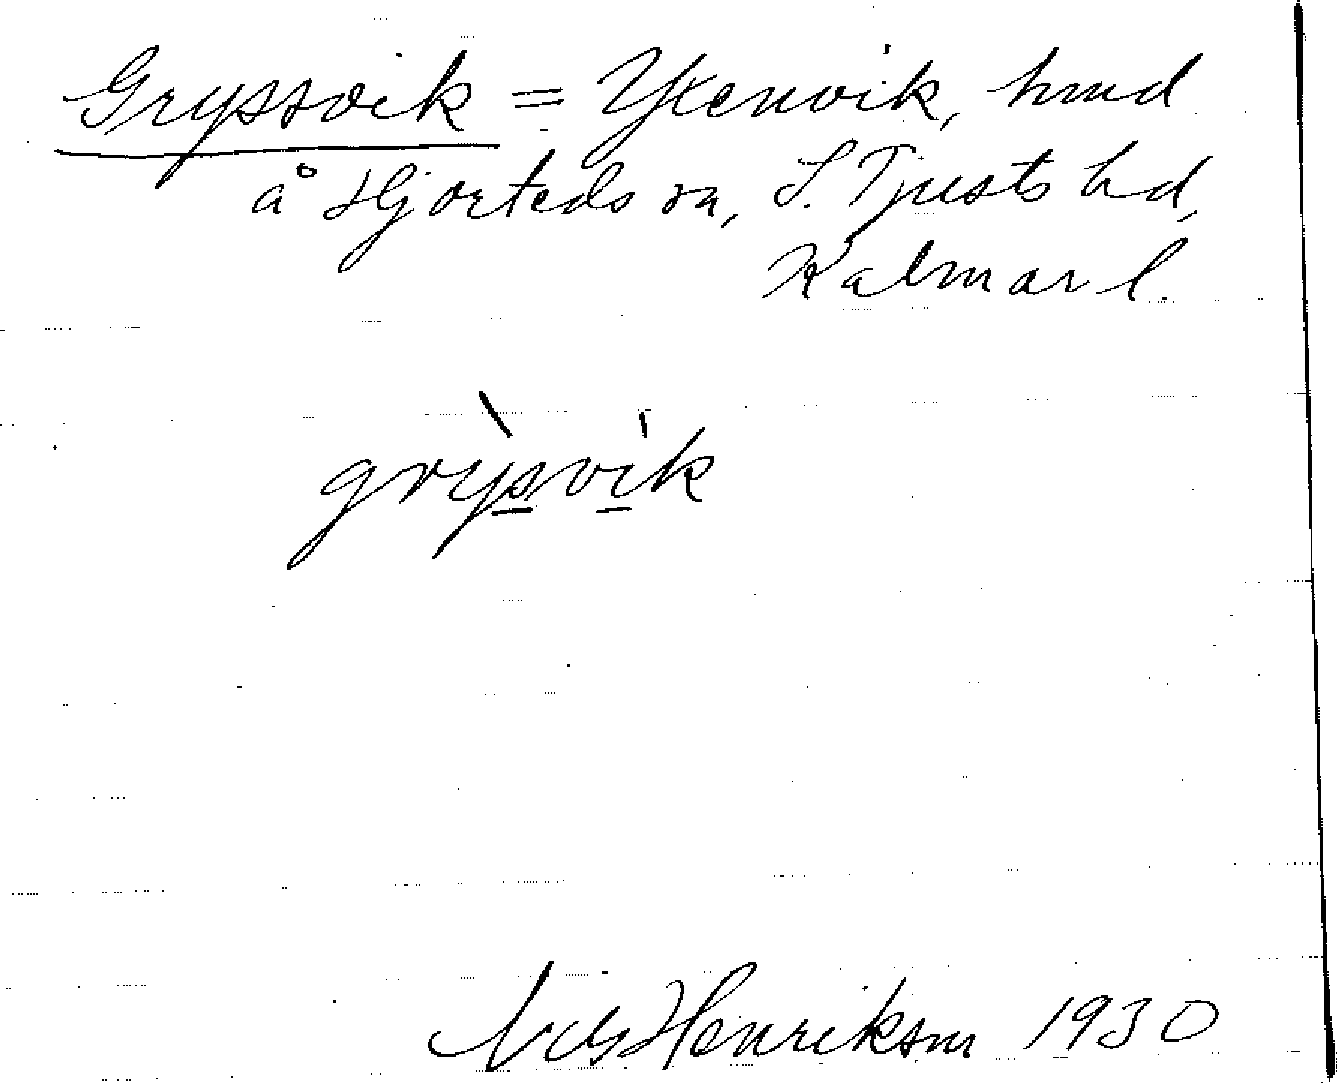 Gryssvik = Ykenvik, hmd
å Hjorteds sn, S. Tjusts hd,
Kalmar l.
grỳsvik
Nils Henriksm 1930